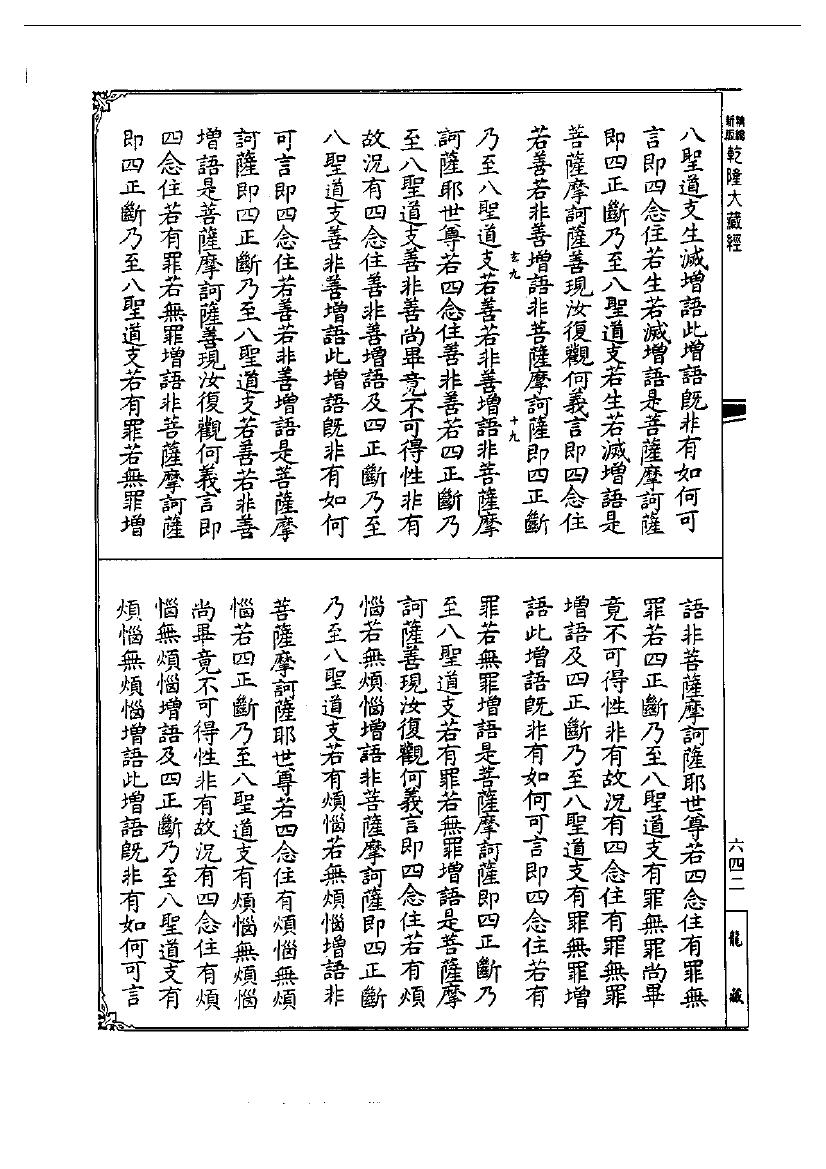 精縮
新版
乾隆大藏經
八聖道支生滅增語此增語既非有如何可
言即四念住若生若滅增語是菩薩摩訶薩
即四正斷乃至八聖道支若生若滅增語是
菩薩摩訶薩善現汝復觀何義言即四念住
若善若非善增語非菩薩摩訶薩即四正斷
玄九
十九
乃至八聖道支若善若非善增語非菩薩摩
訶薩耶世尊若四念住善非善若四正斷乃
至八聖道支善非善尚畢竟不可得性非有
故況有四念住善非善增語及四正斷乃至
八聖道支善非善增語此增語既非有如何
可言即四念住若善若非善增語是菩薩摩
訶薩即四正斷乃至八聖道支若善若非善
增語是菩薩摩訶薩善現汝復觀何義言即
四念住若有罪若無罪增語非菩薩摩訶薩
即四正斷乃至八聖道支若有罪若無罪增
語非菩薩摩訶薩耶世尊若四念住有罪無
罪若四正斷乃至八聖道支有罪無罪尚畢
竟不可得性非有故況有四念住有罪無罪
增語及四正斷乃至八聖道支有罪無罪增
語此增語既非有如何可言即四念住若有
罪若無罪增語是菩薩摩訶薩即四正斷乃
至八聖道支若有罪若無罪增語是菩薩摩
訶薩善現汝復觀何義言即四念住若有煩
惱若無煩惱增語非菩薩摩訶薩即四正斷
乃至八聖道支若有煩惱若無煩惱增語非
菩薩摩訶薩耶世尊若四念住有煩惱無煩
惱若四正斷乃至八聖道支有煩惱無煩惱
尚畢竟不可得性非有故況有四念住有煩
惱無煩惱增語及四正斷乃至八聖道支有
煩惱無煩惱增語此增語既非有如何可言
六四二
龍藏